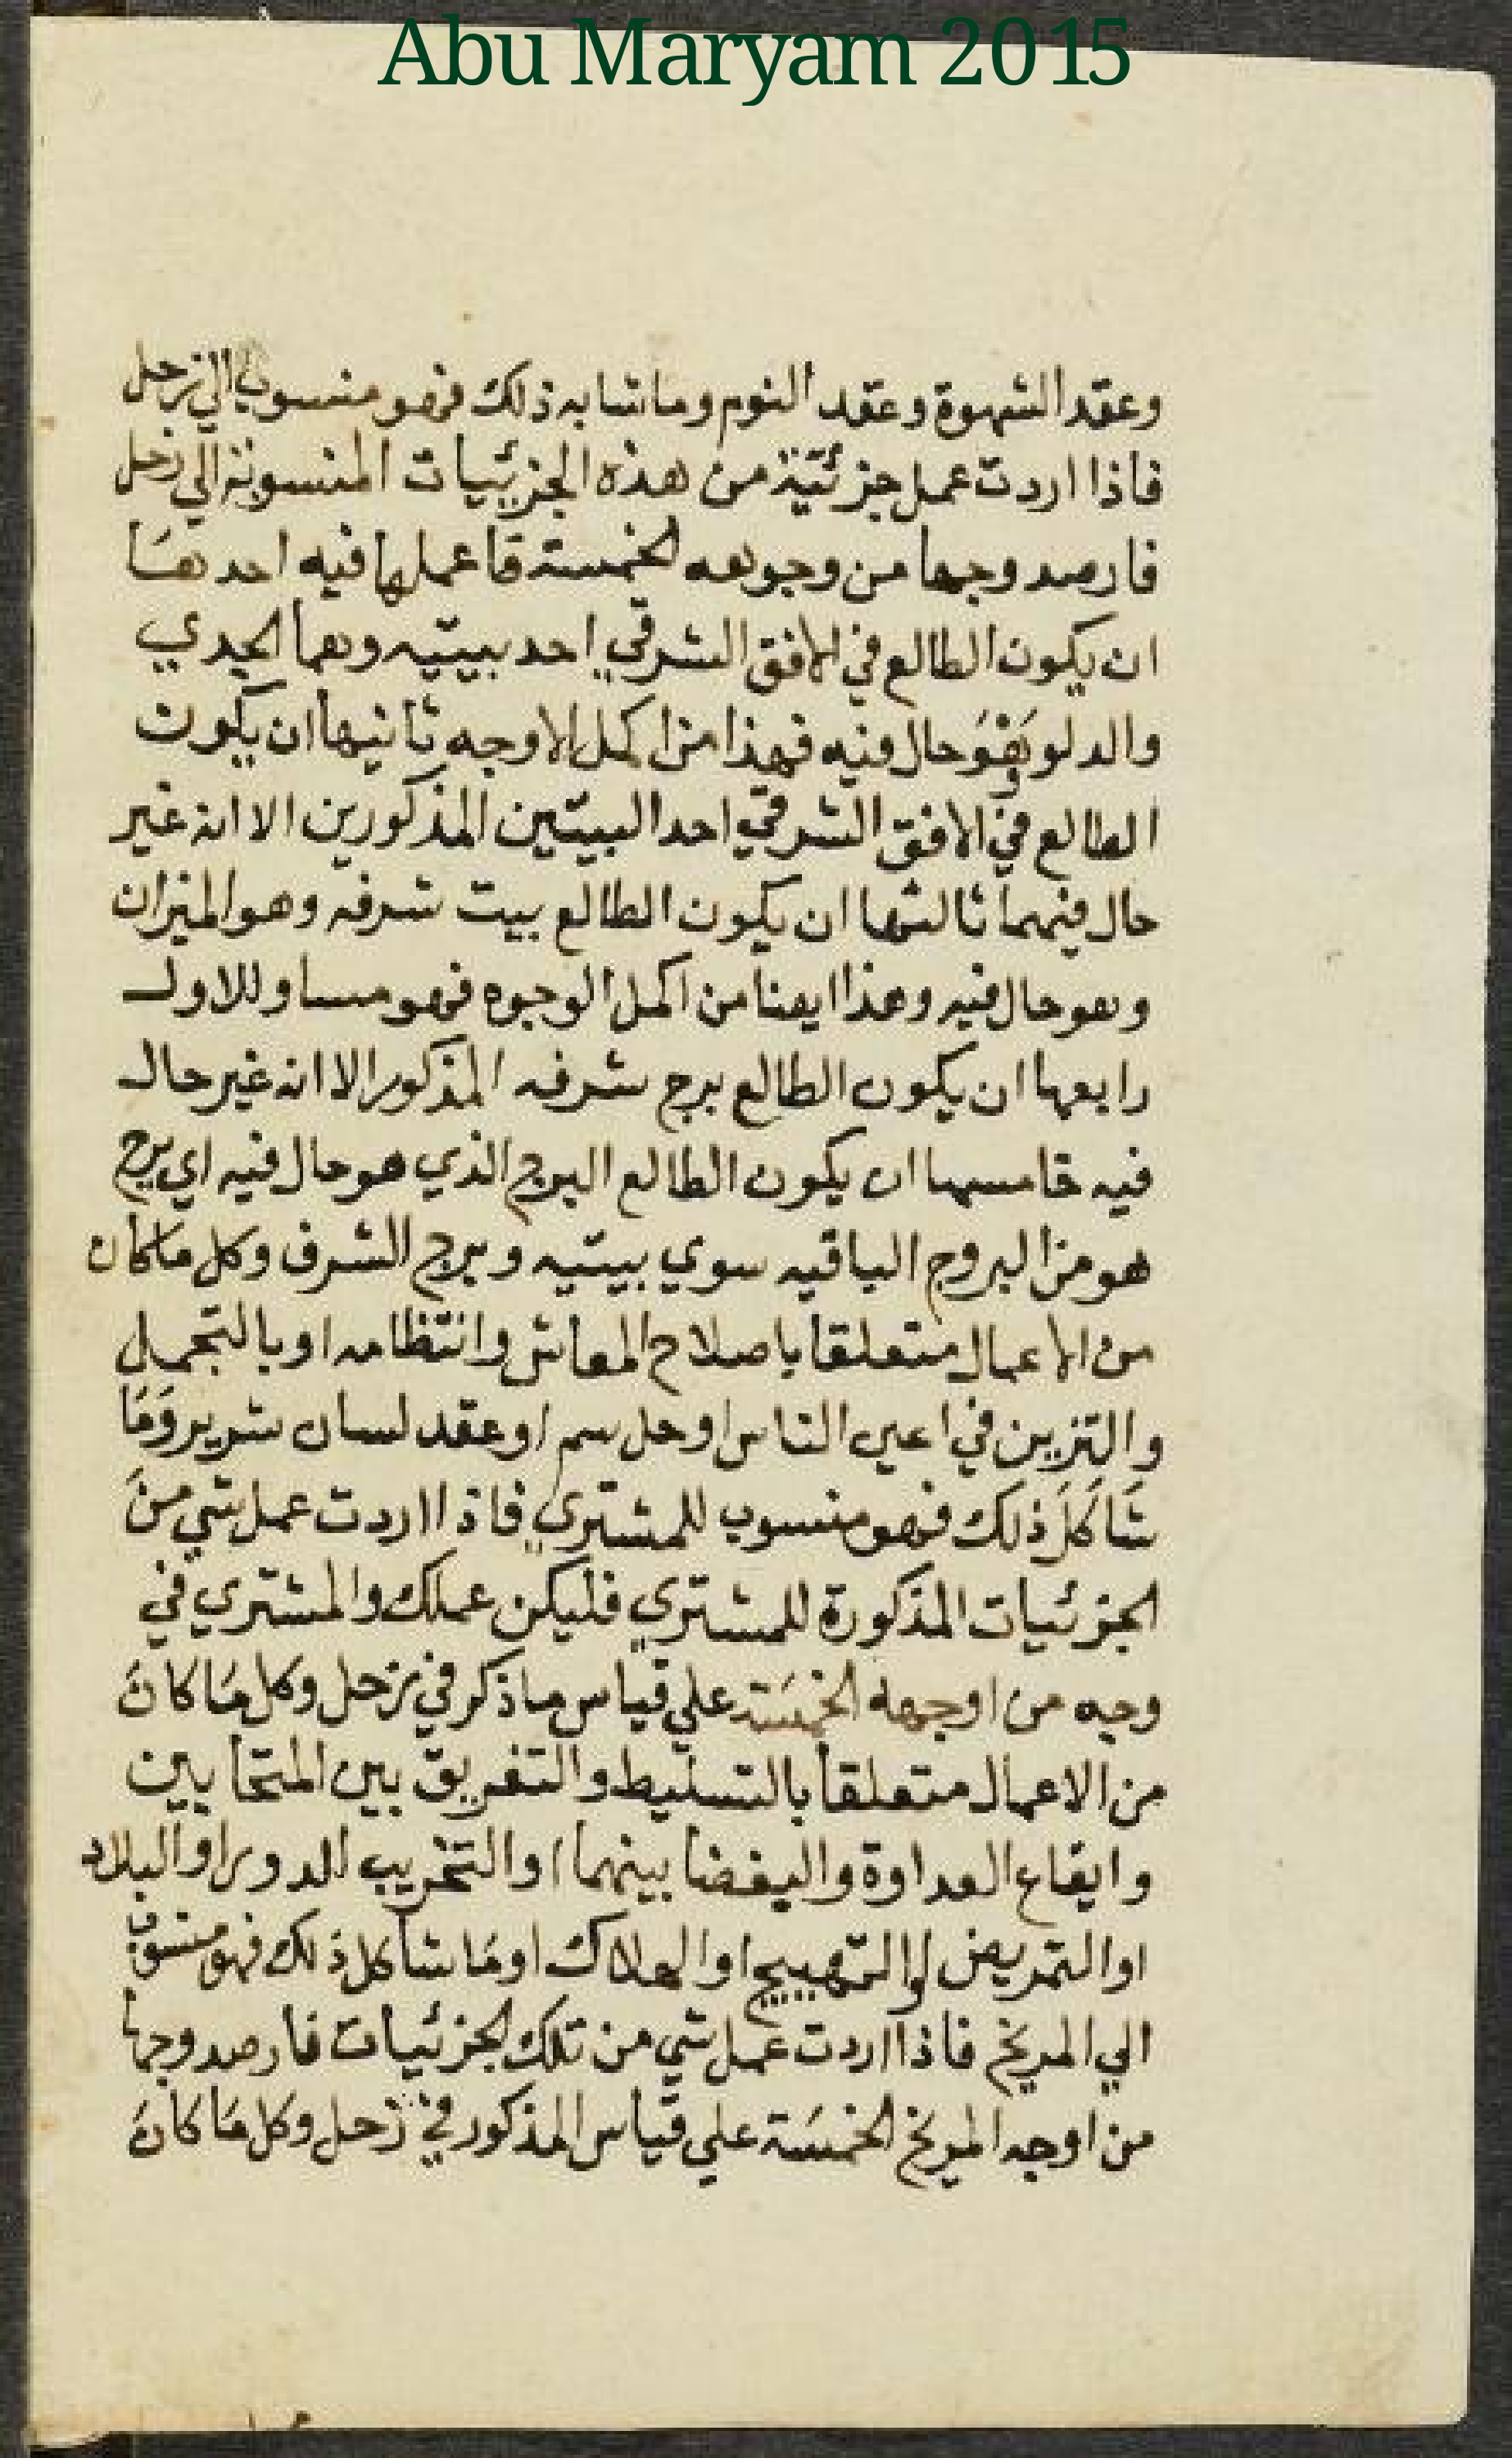 Abu Maryam 2015
وعقد الشهوة وعقد النوم وما شابه ذلك فهو منسوب الي زحل
فاذا اردت عمل جزئية من هذه الجزئيات المنسوبة الي زحل
فارصد وجها من وجوهه الخمسة فاعملها فيه احدها
ان يكون الطالع في الافق الشرقي احد بيتيه وهما الجدي
والدلو وهو حال فيه فهذا من اكمل الاوجه ثانيها ان يكون
الطالع في الافق الشرقي احد البيتين المذكورين الا انه غير
حال فيهما ثالثها ان يكون الطالع بيت شرفه وهو الميزان
وهو حال فيه وهذا ايضا من اكمل الوجوه فهو مساو للاول
رابعها ان يكون الطالع برج شرفه المذكور الا انه غير حال
فيه خامسها ان يكون الطالع البرج الذي هو حال فيه اي برج
هو من البروج الباقيه سوي بيتيه وبرج الشرف وكل ما كان
من الاعمال متعلقا باصلاح المعاش وانتظامه او بالتجمل
والتزين في اعين الناس او حل سم او عقد لسان شرير وما
شاكل ذلك فهو منسوب للمشتري فاذا اردت عمل شي من
الجزئيات المذكورة للمشتري فليكن عملك والمشتري في
وجه من اوجهه الخمسة علي قياس ما ذكر في زحل وكل ما كان
من الاعمال متعلقا بالتسليط والتفريق بين المتحابين
وايقاع العداوة والبغضا بينهما او التخريب للدور او البلاد
او التمريض او التهييج او الهلاك او ما شاكل ذلك فهو منسوب
الي المريخ فاذا اردت عمل شي من تلك الجزئيات فارصد وجها
من اوجه المريخ الخمسة علي قياس المذكور في زحل وكل ما كان